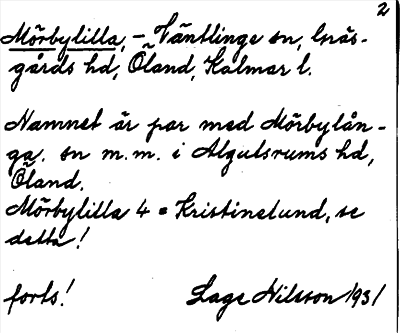 2
Mörbylilla, - Ventlinge sn, Gräs-
gårds hd, Öland, Kalmar l.
Namnet är par med Mörbylån-
ga. sn m.m. i Algutsrums hd,
Öland.
Mörbylilla 4 = Kristinelund, se
detta!
forts! Lage Nilsson 1931